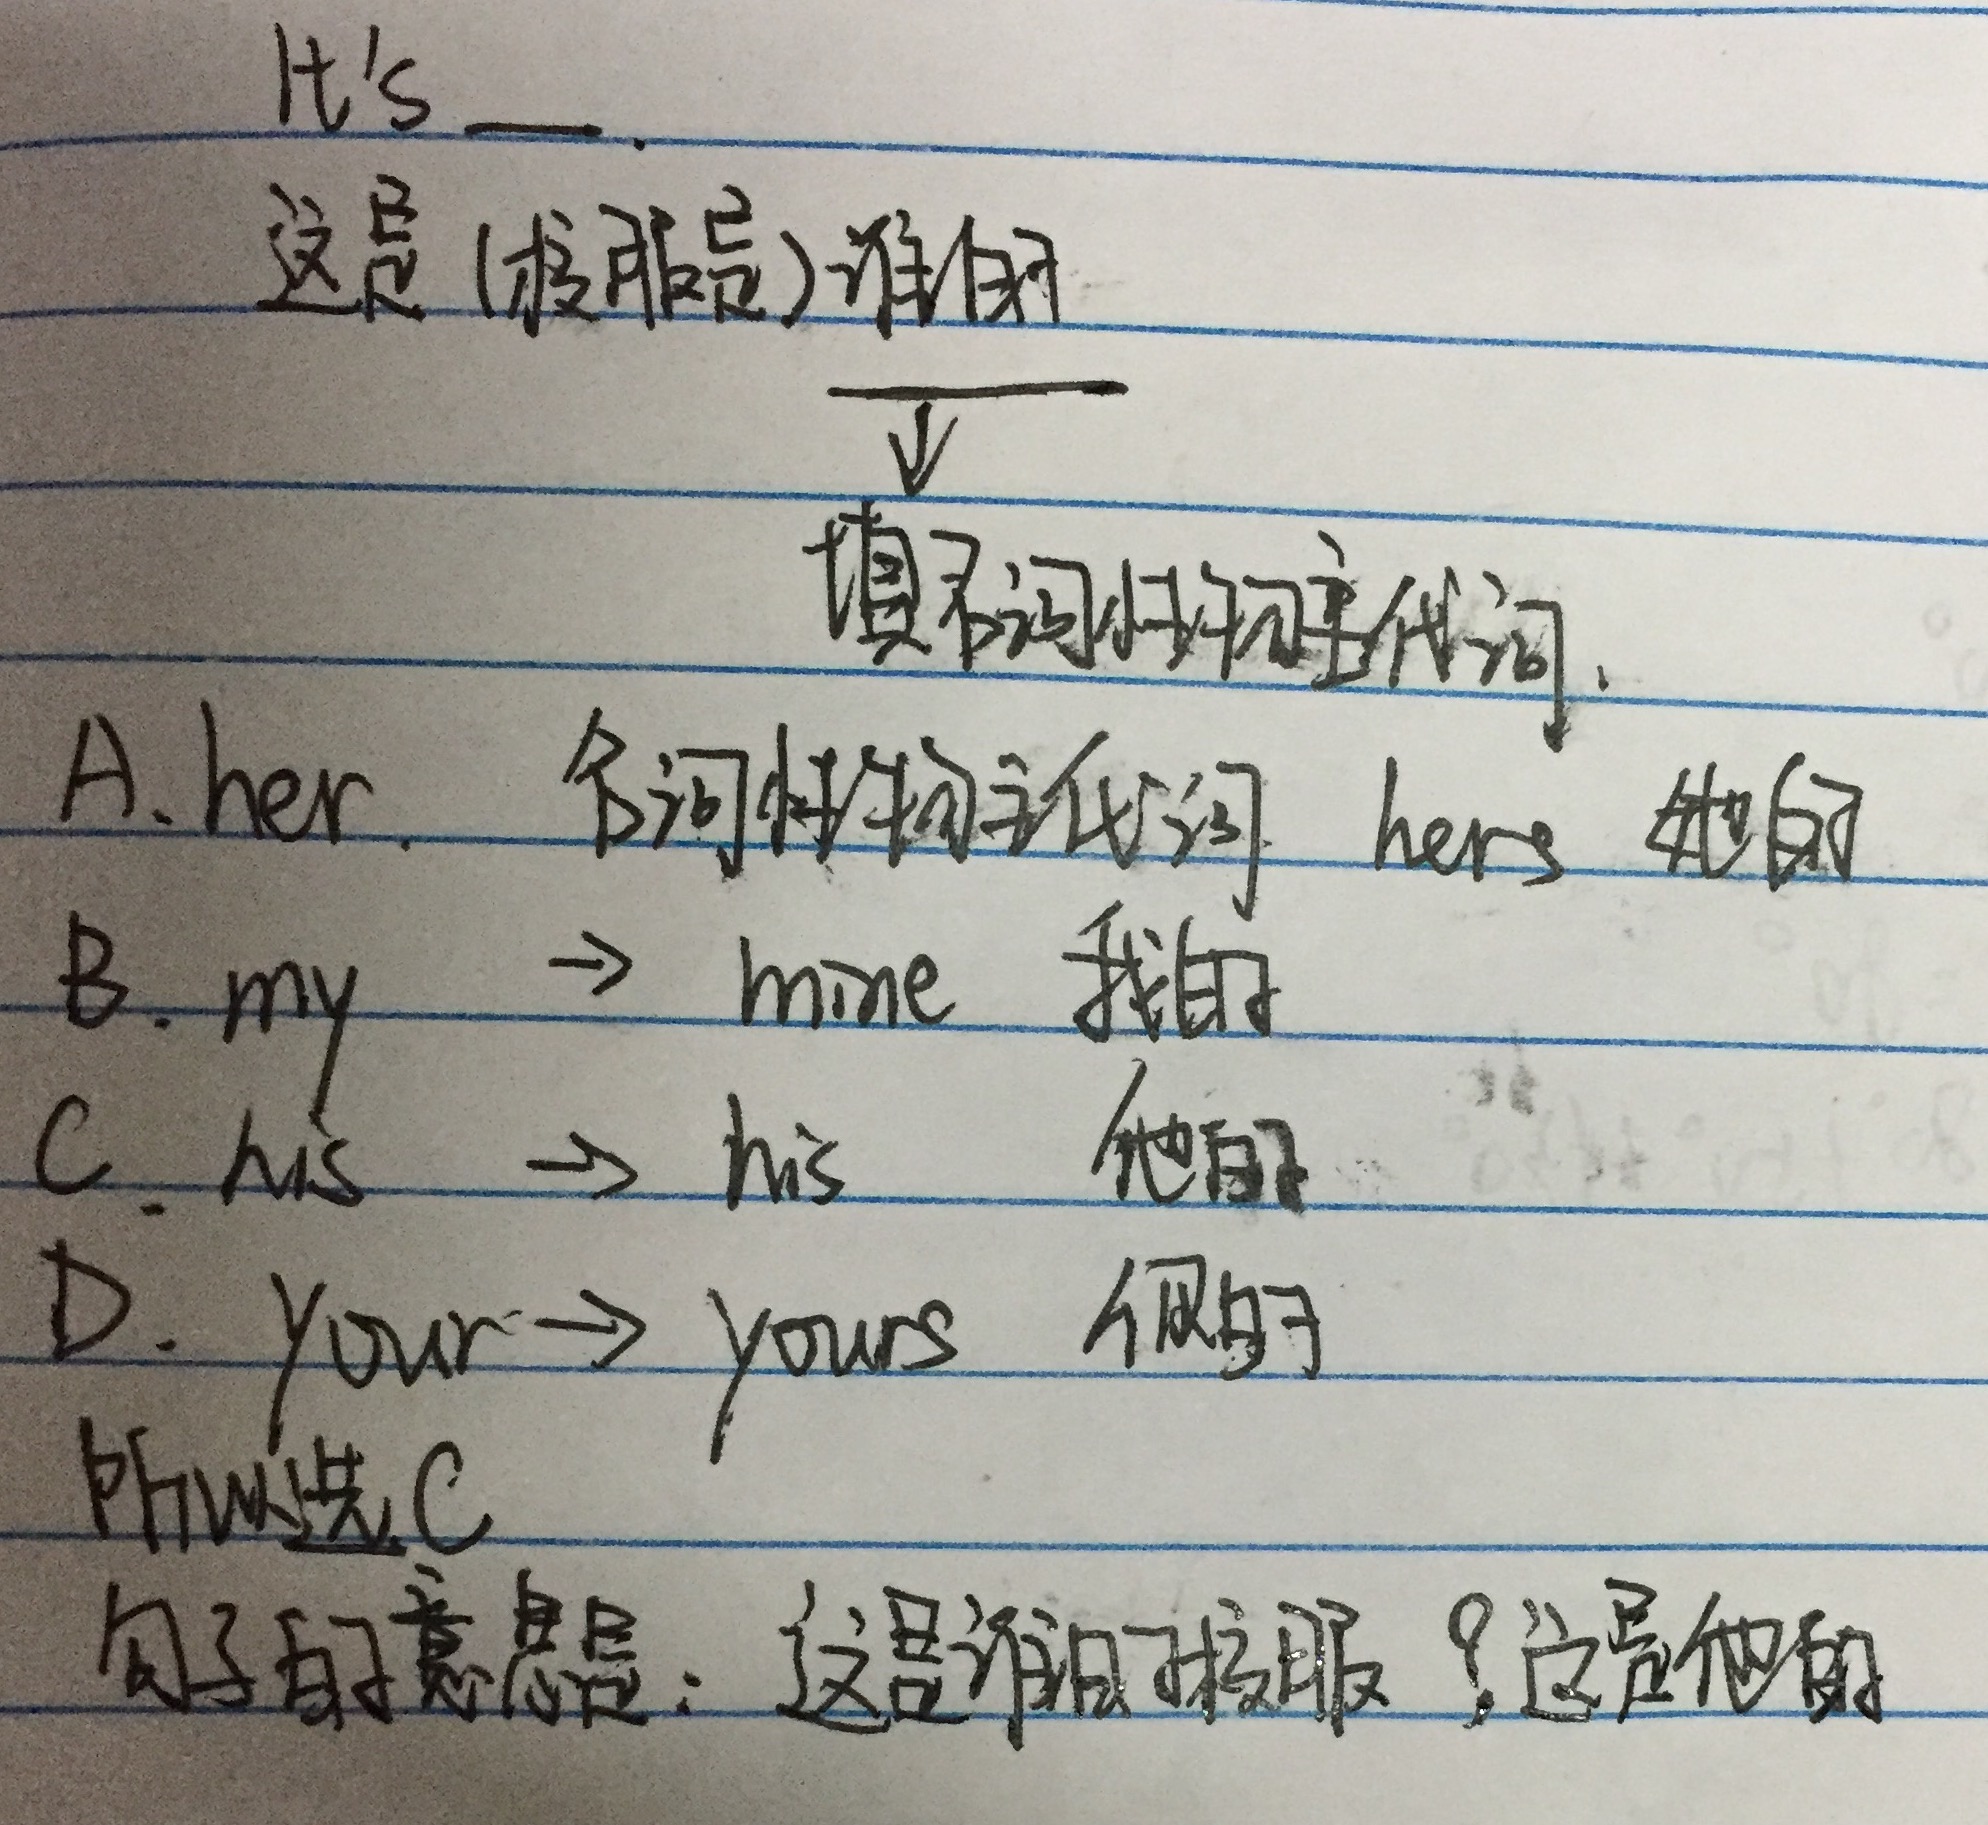 It's ___.
这是(校服是)谁的
↓
填名词性物主代词.
A. her. 名词性物主代词 hers 她的
B. my → mine 我的
C. his → his 他的
D. your → yours 你的
所以选C
句子的意思是：这是谁的校服？这是他的